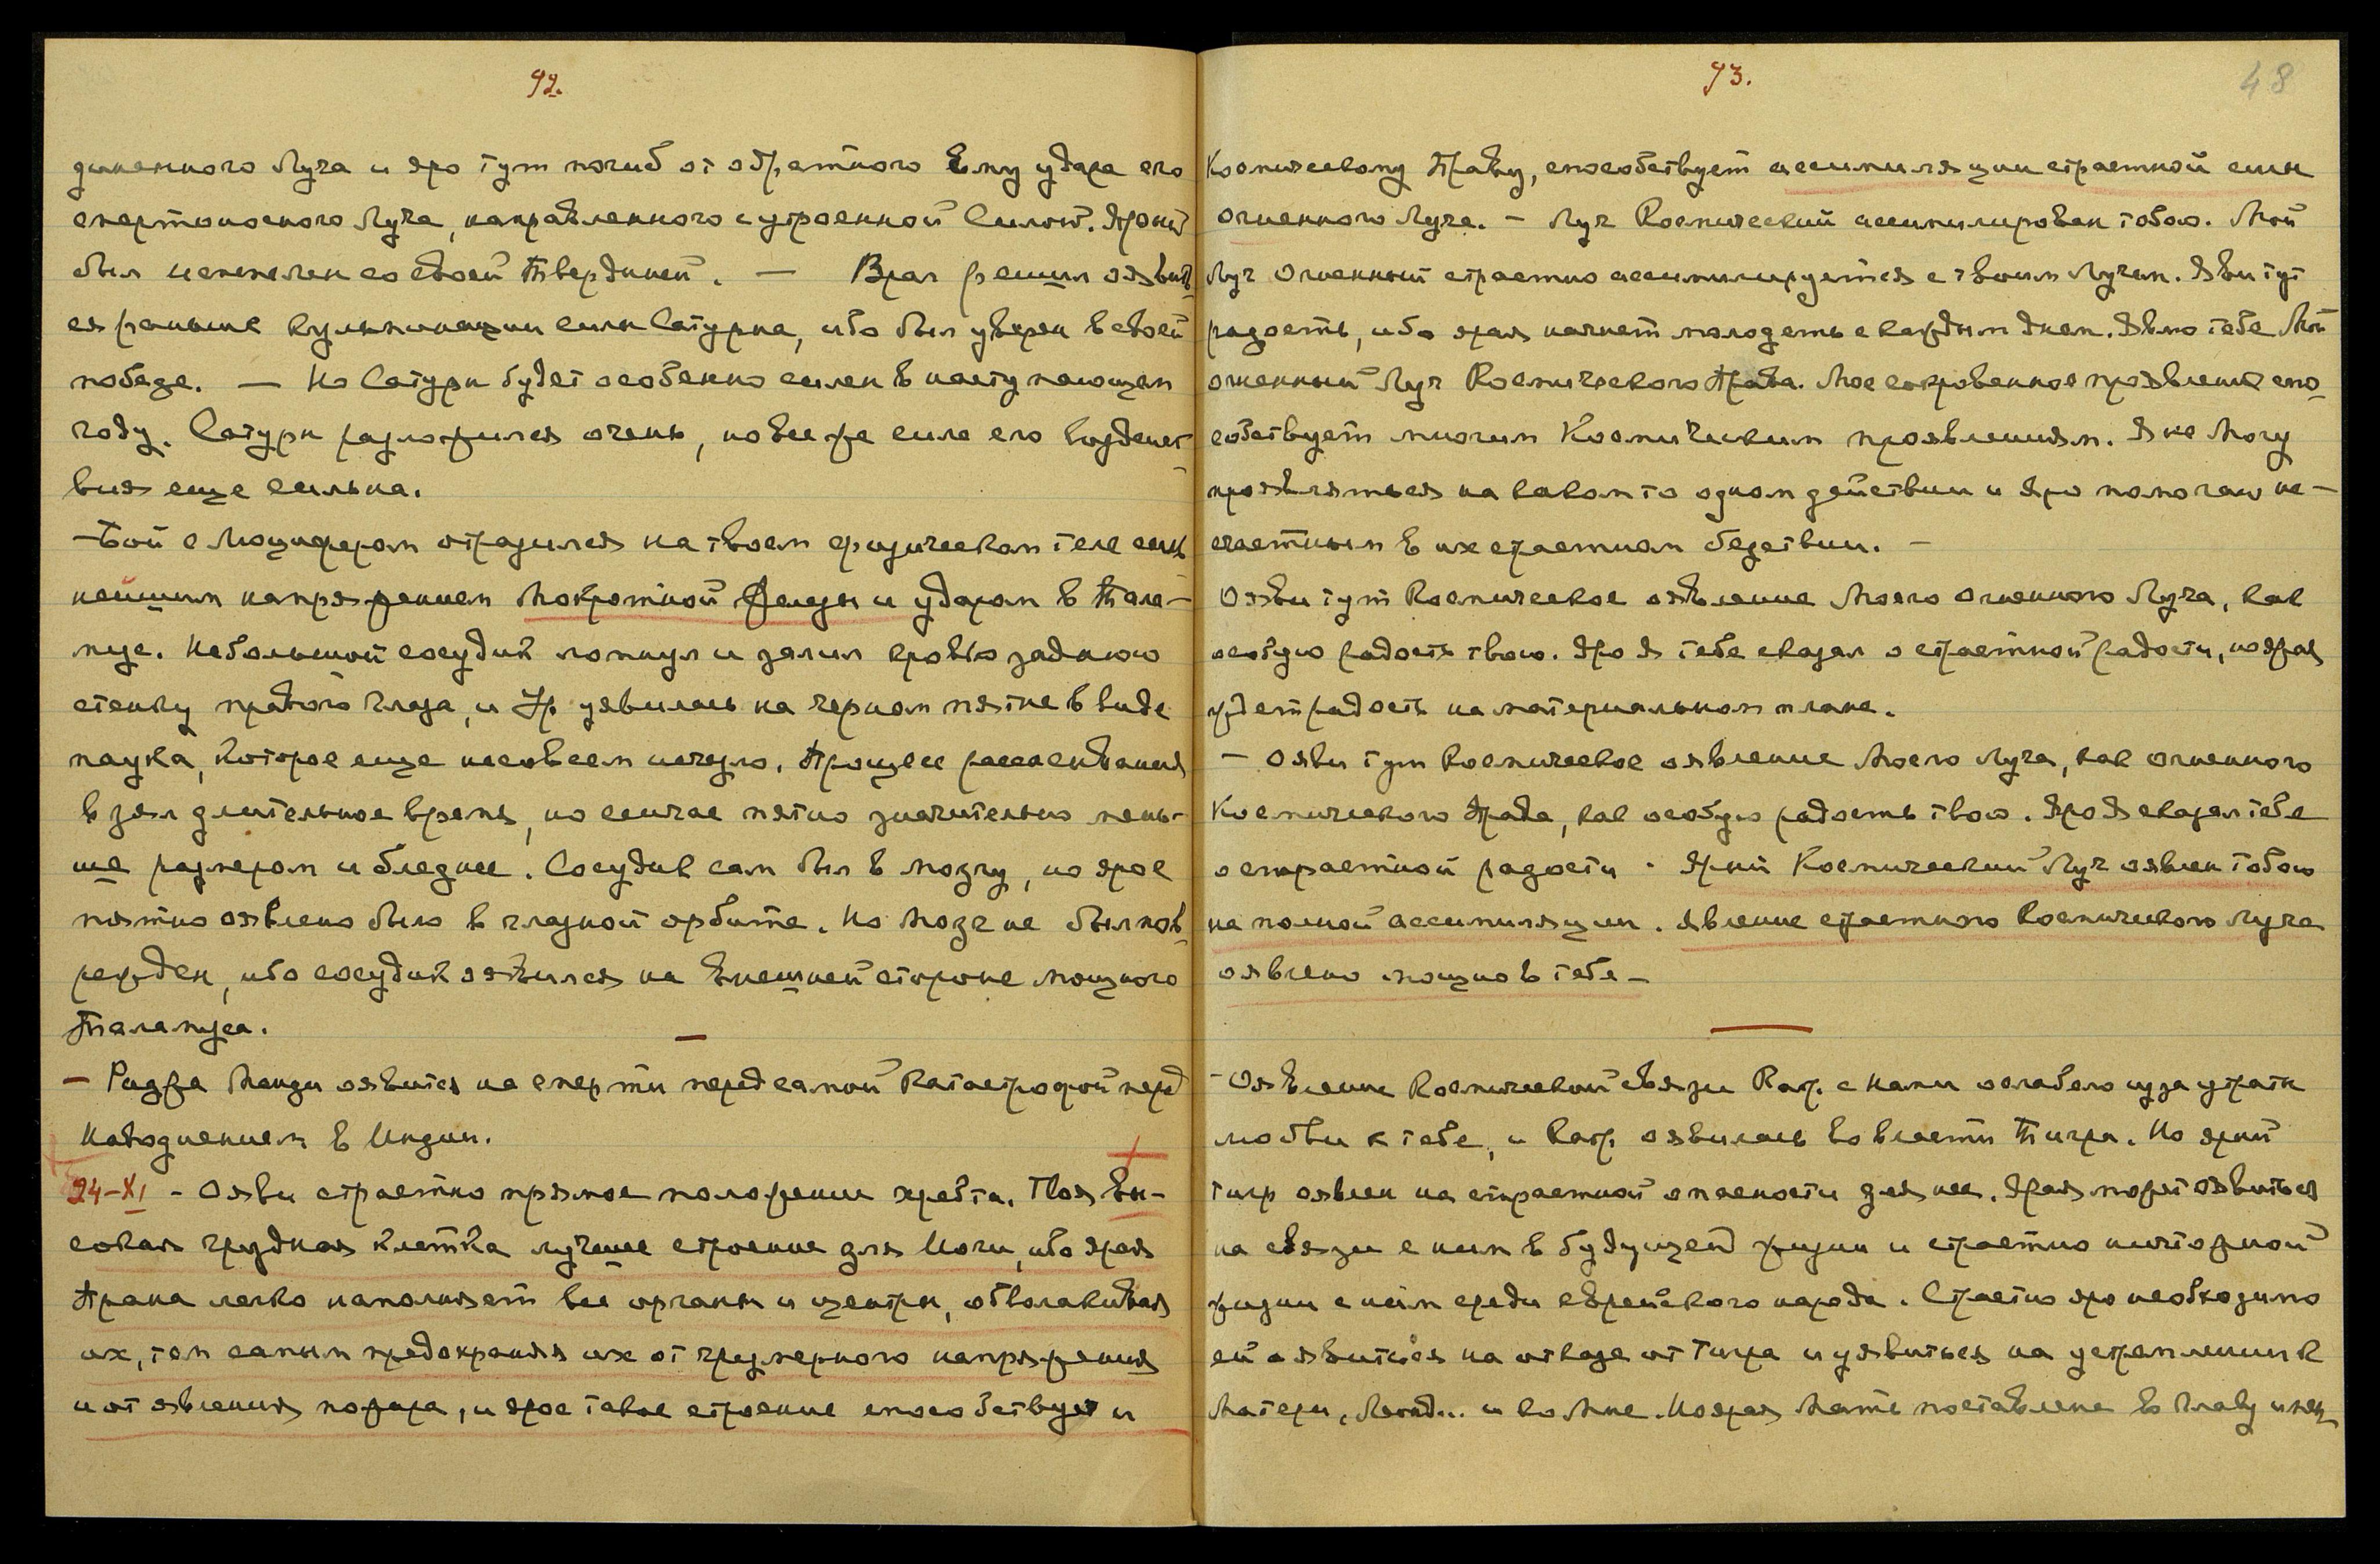 92.
диненного Луча и яро тут погиб от обратного Ему удара его
смертоносного Луча, направленного с утроенной Силой. Ярый
был испепелен со своей Твердыней. — Враг решил оявить-
ся раньше кульминации силы Сатурна, ибо был уверен в своей
победе. — Но Сатурн будет особенно силен в наступающем
году. Сатурн разложился очень, но все же сила его воздейст-
вия еще сильна.
— Бой с Люцифером отразился на твоем физическом теле силь-
нейшим напряжением Мокротной Железы и ударом в Тала-
мус. Небольшой сосудик лопнул и залил кровью заднюю
стенку правого глаза, и Ур. уявилась на черном пятне в виде
паука, которое еще не совсем исчезло. Процесс рассасывания
взял длительное время, но сейчас пятно значительно мень-
ше размером и бледнее. Сосудик сам был в мозгу, но ярое
пятно оявлено было в глазной орбите. Но мозг не был пов-
режден, ибо сосудик оявился на внешней стороне мощного
Таламуса.
— Раджа Манди оявится на смерти перед самой Катастрофой перед
Наводнением в Индии.
24–XI – Ояви страстно прямое положение хребта. Твоя вы-
сокая грудная клетка лучшее строение для Йоги, ибо ярая
Прана легко наполняет все органы и центры, обволакивая
их, тем самым предохраняя их от чрезмерного напряжения
и от явления пожара, и ярое такое строение способствует и
93.
48
Космическому Праву, способствует ассимиляции страстной силы
Огненного Луча. – Луч Космический ассимилирован тобою. Мой
Луч Огненный страстно ассимилируется с твоим Лучем. Яви тут
радость, ибо ярая начнет молодеть с каждым днем. Явлю тебе Мой
огненный Луч Космического Права. Мое сокровенное проявление спо-
собствует многим Космическим проявлениям. Я не Могу
проявляться на каком то одном действии и Яро помогаю не-
счастным в их страстном бедствии. –
Ояви тут Космическое оявление Моего Огненного Луча, как
особую радость твою. Яро Я тебе сказал о страстной радости, но ярая
ждет радость на материальном плане.
– Ояви тут Космическое оявление Моего Луча, как огненного
Космического Права, как особую радость твою. Яро Я сказал тебе
о страстной радости. Ярый Космический Луч оявлен тобою
на полной ассимиляции. Явление страстного Космического Луча
оявлено мощно в тебе –
– Оявление Космической связи Кат. с Нами ослабело из за утраты
любви к тебе, и Кат. оявилась во власти Тигра. Но ярый
тигр оявлен на страстной опасности для нее. Ярая может оявиться
на связи с ним в будущей жизни и страстно ничтожной
жизни с ним среди еврейского народа. Страстно яро необходимо
ей оявиться на отказе от Тигра и уявиться на устремлении к
Матери, и ко Мне. Но ярая Мать поставлена во главу